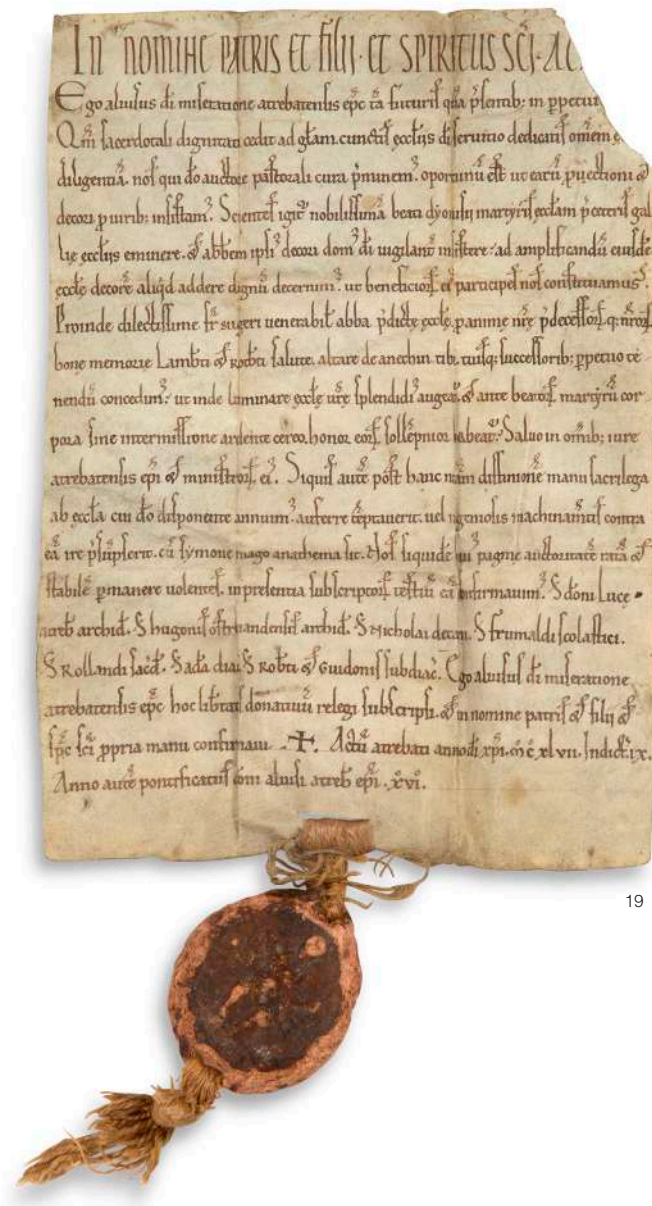 IN NOMINE PATRIS ET FILII · ET SPIRITUS SC̄I · A
Ego aluisus di miseratione atrebatensis epc tā futuris quā p̄sentib; in perpetuū
Qm̄ sacerdotali dignitati cedit ad glām cunctis ęcclīis di seruitio dedicatis omēm
diligentiā. nos qui do auctore pastorali cura p̄minem᾽. oportunū est ut earū ꝓuectioni &
decori ꝓ uirib; insistam᾽. Scientes igit᾽ nobilissimā beati dyonisii martyris ęcclam p̄ceteris gal
lię ęcclīis eminere. & abbem ipsi᾽ decori dom᾽ di uigilant᾽ insistere. ad amplificandū eiusdē
ęcclę decorē aliqd addere dignū decernim᾽. ut beneficioꝝ ei᾽ participes nos constituamus.
Proinde dilectissime fr̄ sugeri uenerabil᾽ abba p̄dictę ęcclę. ꝓ animę nr̄ę p̄decessoꝝ q; nr̄oꝝ
bone memorie Lamb̄ti & rob̄ti salute. altare de anechin tibi. tuisq; successorib; perpetuo te
nendū concedim᾽. ut inde luminare ęcclę ur̄e splendidi᾽ augeat᾽. & ante beatoꝝ martyrū cor
pora sine intermissione ardente cereo. honor eoꝝ sollepnior habeat᾽. Saluo in omīb; iure
atrebatensis ep̄i & ministroꝝ ei᾽. Siquis autē post hanc nr̄am diffinitionē manu sacrilega
ab ęccla cui do disponente annuim᾽. auferre tēptauerit. uel ingeniosis machinam̄tis contra
eā ire p̄sūpserit. cū symone mago anathema sit. Nos siquidē hui᾽ pagine auctoritatē ratā &
stabilē ꝑmanere uolentes. in presentia subscriptoꝝ testiū eā confirmauim᾽. S᾽ doni Lucę
atreb̄ archid᾽. S᾽ hugonis ostreuandensis archid᾽. S᾽ Nicholai decani. S᾽ frumaldi scolastici.
S᾽ Rollandi sacd᾽. S᾽ adā diac᾽ S᾽ Rob̄ti & Guidonis subdiac᾽. Ego aluisus di miseratione
atrebatensis epc hoc libtatis donatiuū relegi subscripsi. & in nomine patris & filij &
sp̄c sc̄i ꝓpria manu confirmaui. ✝. Actū atrebati anno di xp̄i. m̊ c̊ xl vii. Indict᾽. ix.
Anno autē pontificatus dom̄ aluisi atreb̄ ep̄i. xvi.
19